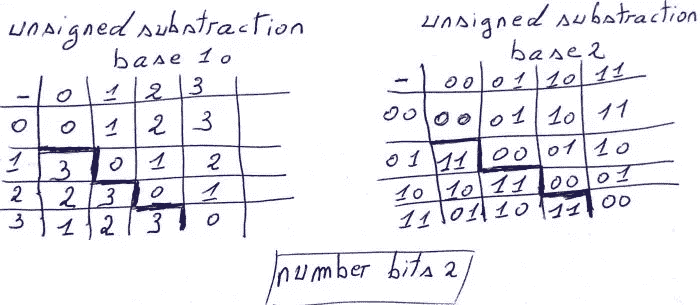 unsigned substraction
base 10
- 0 1 2 3
0 0 1 2 3
1 3 0 1 2
2 2 3 0 1
3 1 2 3 0
unsigned substraction
base 2
- 00 01 10 11
00 00 01 10 11
01 11 00 01 10
10 10 11 00 01
11 01 10 11 00
number bits 2